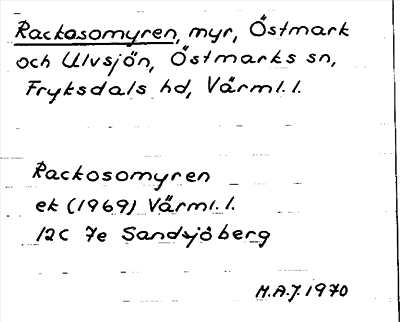 Rackosomyren, myr, Östmark
och Ulvsjön, Östmarks sn,
Fryksdals hd, Värml. l.
Rackosomyren
ek (1969) Värml. l.
12C 7e Sandsjöberg
M.A.J. 1970